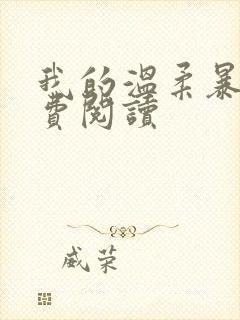 我的溫柔暴
費閱讀
威荣